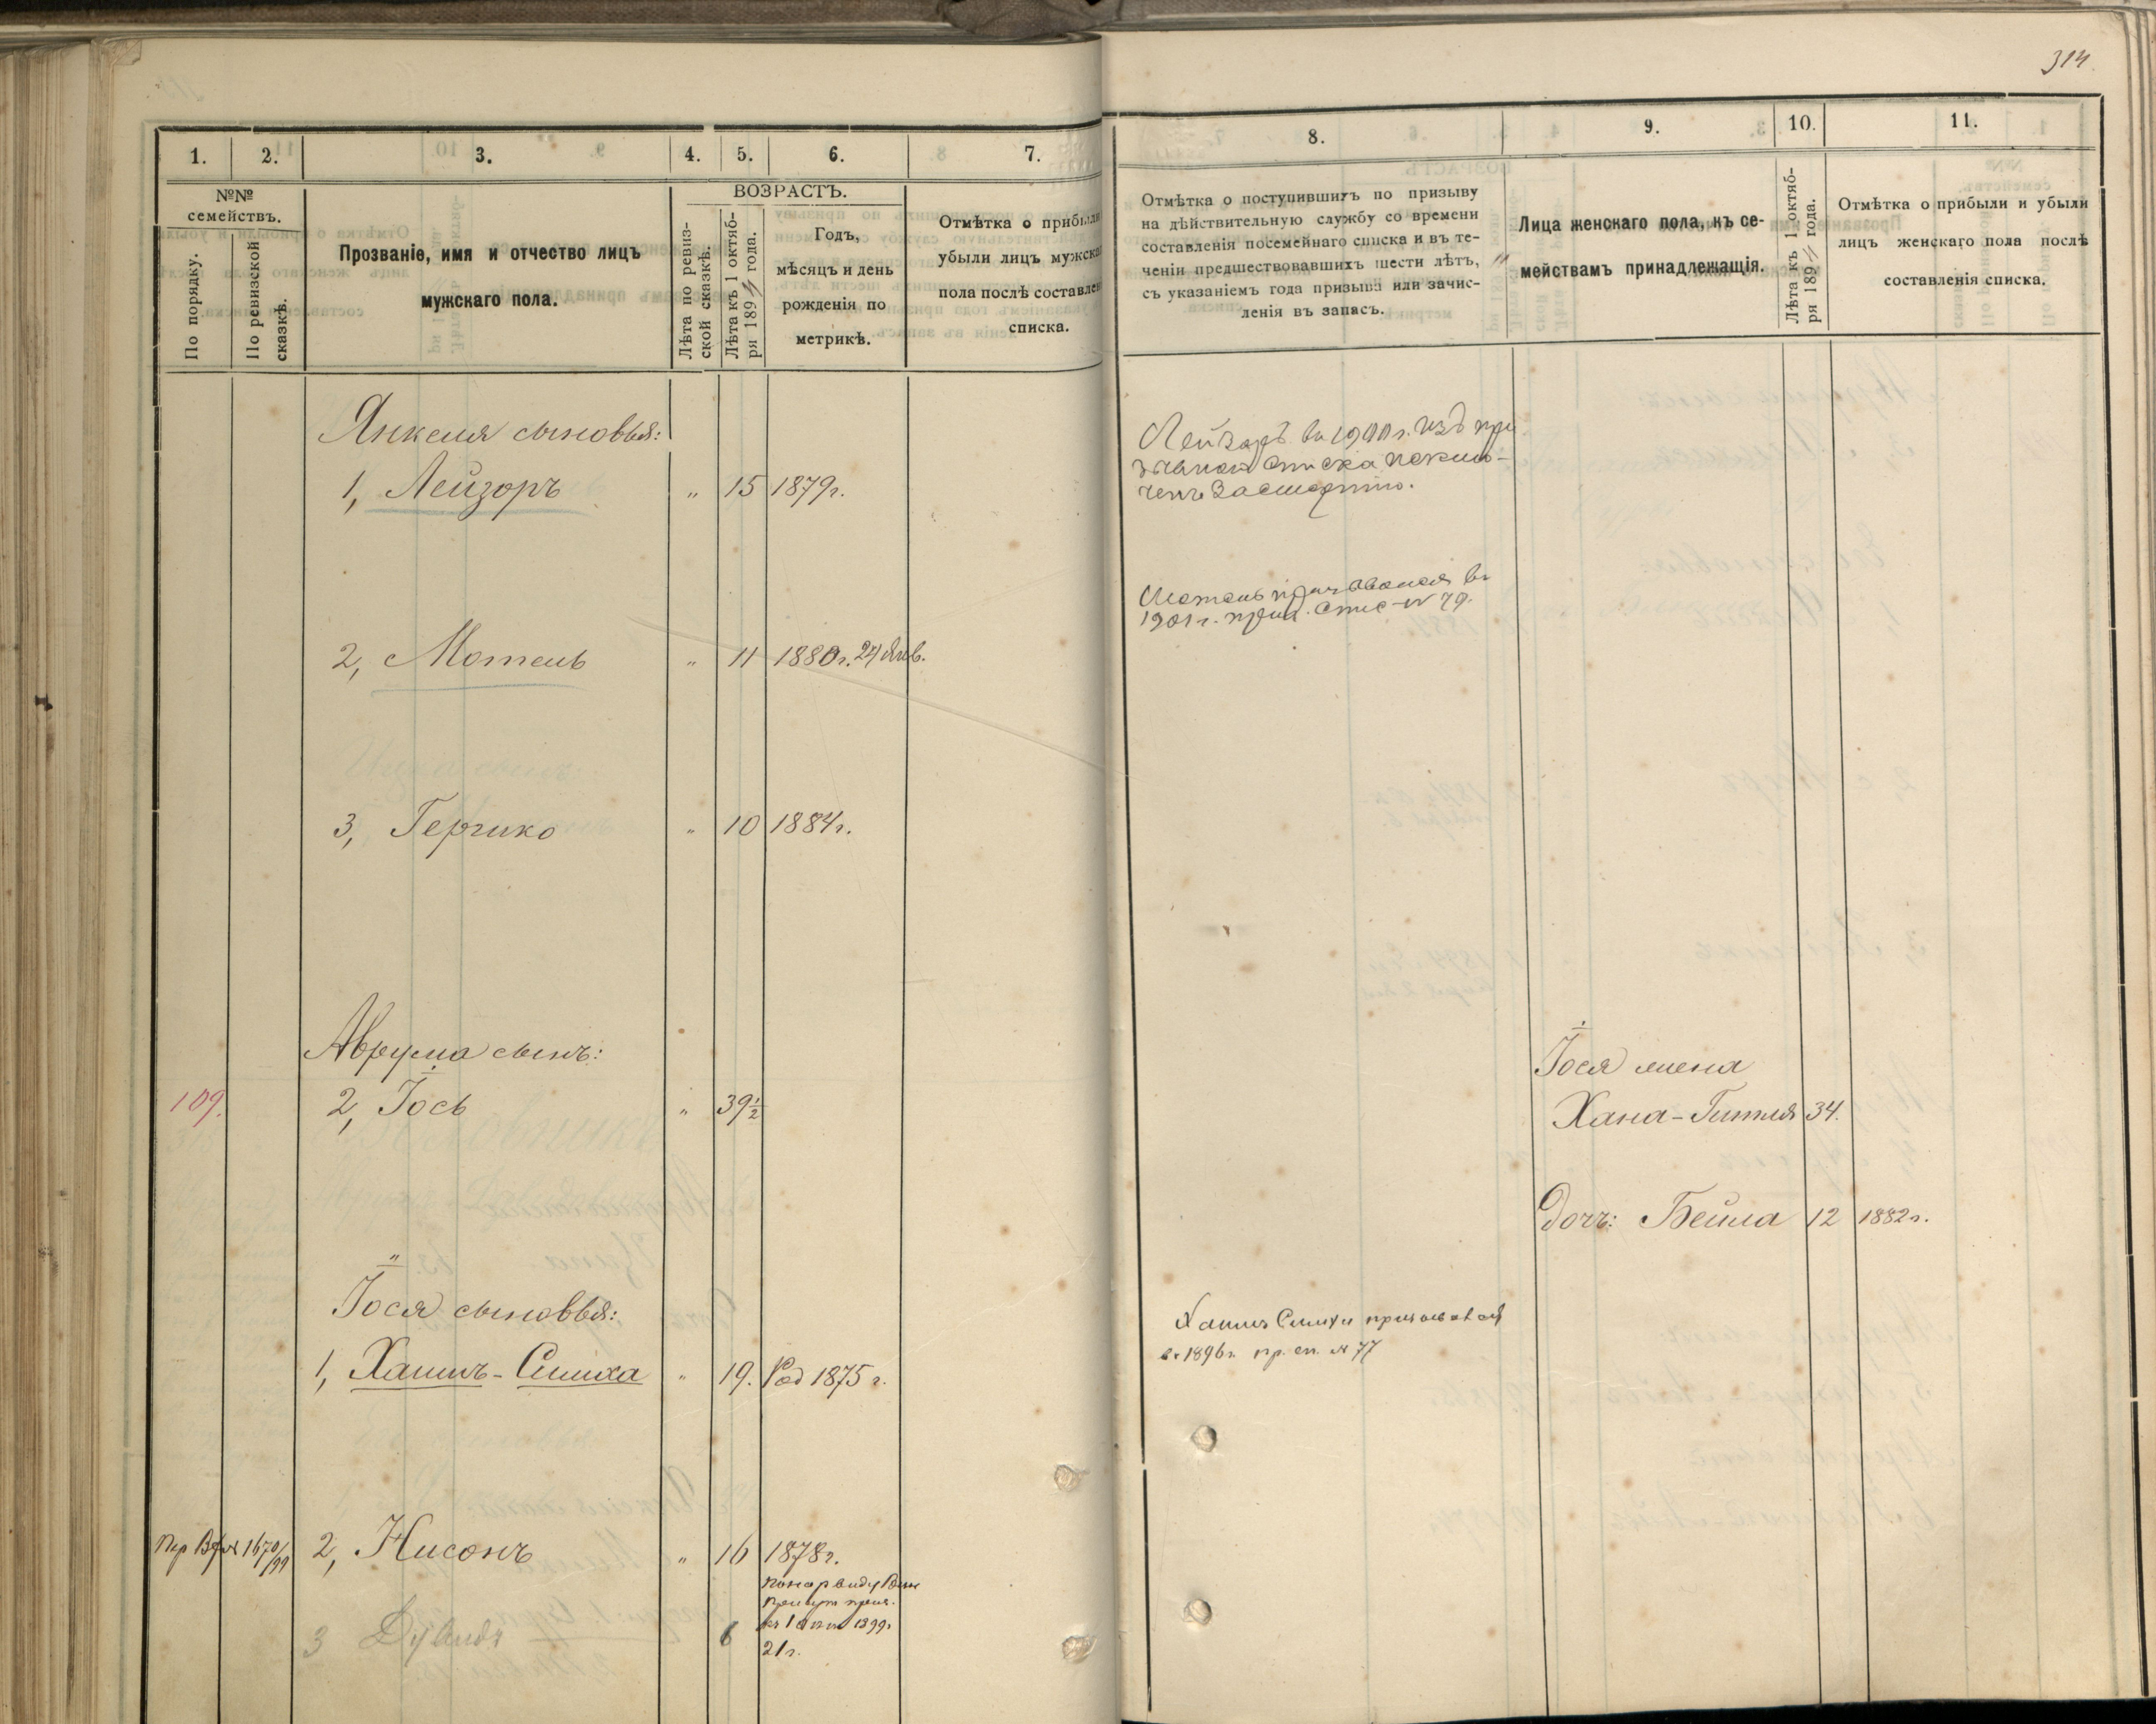 314
1. 2. 3. 4. 5. 6. 7.
№№ семействъ.
По порядку.
По ревизской сказкѣ.
Прозваніе, имя и отчество лицъ
мужскаго пола.
ВОЗРАСТЪ.
Лѣта по ревиз-
ской сказкѣ.
Лѣта къ 1 октяб-
ря 1894 года.
Годъ,
мѣсяцъ и день
рожденія по
метрикѣ.
Отмѣтка о прибыли
убыли лицъ мужска
пола послѣ составлен
списка.
Янкеля сыновья:
1, Лейзоръ " 15 1879г.
2, Мотель " 11 1880г. 24 Янв.
3, Гершко " 10 1884г.
Аврума сынъ:
109. 2, Іось " 39½
Іося сыновья:
1, Хаимъ-Симха " 19. Род 1875 г.
№ 1670/99 2, Нисонъ " 16 1878г.
1899г
21г.
3 Дувидъ 6
8. 9. 10. 11.
Отмѣтка о поступившихъ по призыву
на дѣйствительную службу со времени
составленія посемейнаго списка и въ те-
ченіи предшествовавшихъ шести лѣтъ,
съ указаніемъ года призыва или зачис-
ленія въ запасъ.
Лица женскаго пола, къ се-
мействамъ принадлежащія.
Лѣта къ 1 октяб-
ря 1894 года.
Отмѣтка о прибыли и убыли
лицъ женскаго пола послѣ
составленія списка.
Лейзоръ въ 1900г. изъ при
зывнаго списка исклю-
ченъ за смертію.
Мотель призывался въ
1901г. приз. спис. № 79.
Іося жена
Хана-Гитля 34.
Дочь: Бейла 12 1882г.
Хаимъ Симха призывался
въ 1896г. пр. сп. № 77